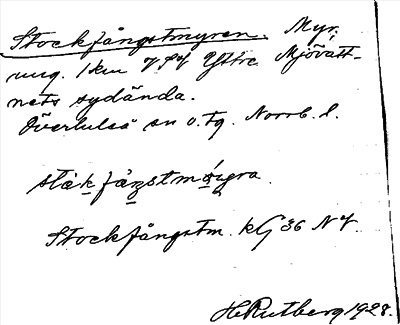 Stockfångstmyren. Myr,
ung. 1 km V Yttre Mjövatt-
nets sydända.
Överluleå sn o. tg. Norrb. l.
Stockfångstm. kG 36 NV.
H Rutberg 1928.